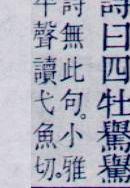 詩曰四牡䮷䮷
詩無此句。小雅
平聲讀弋魚切。